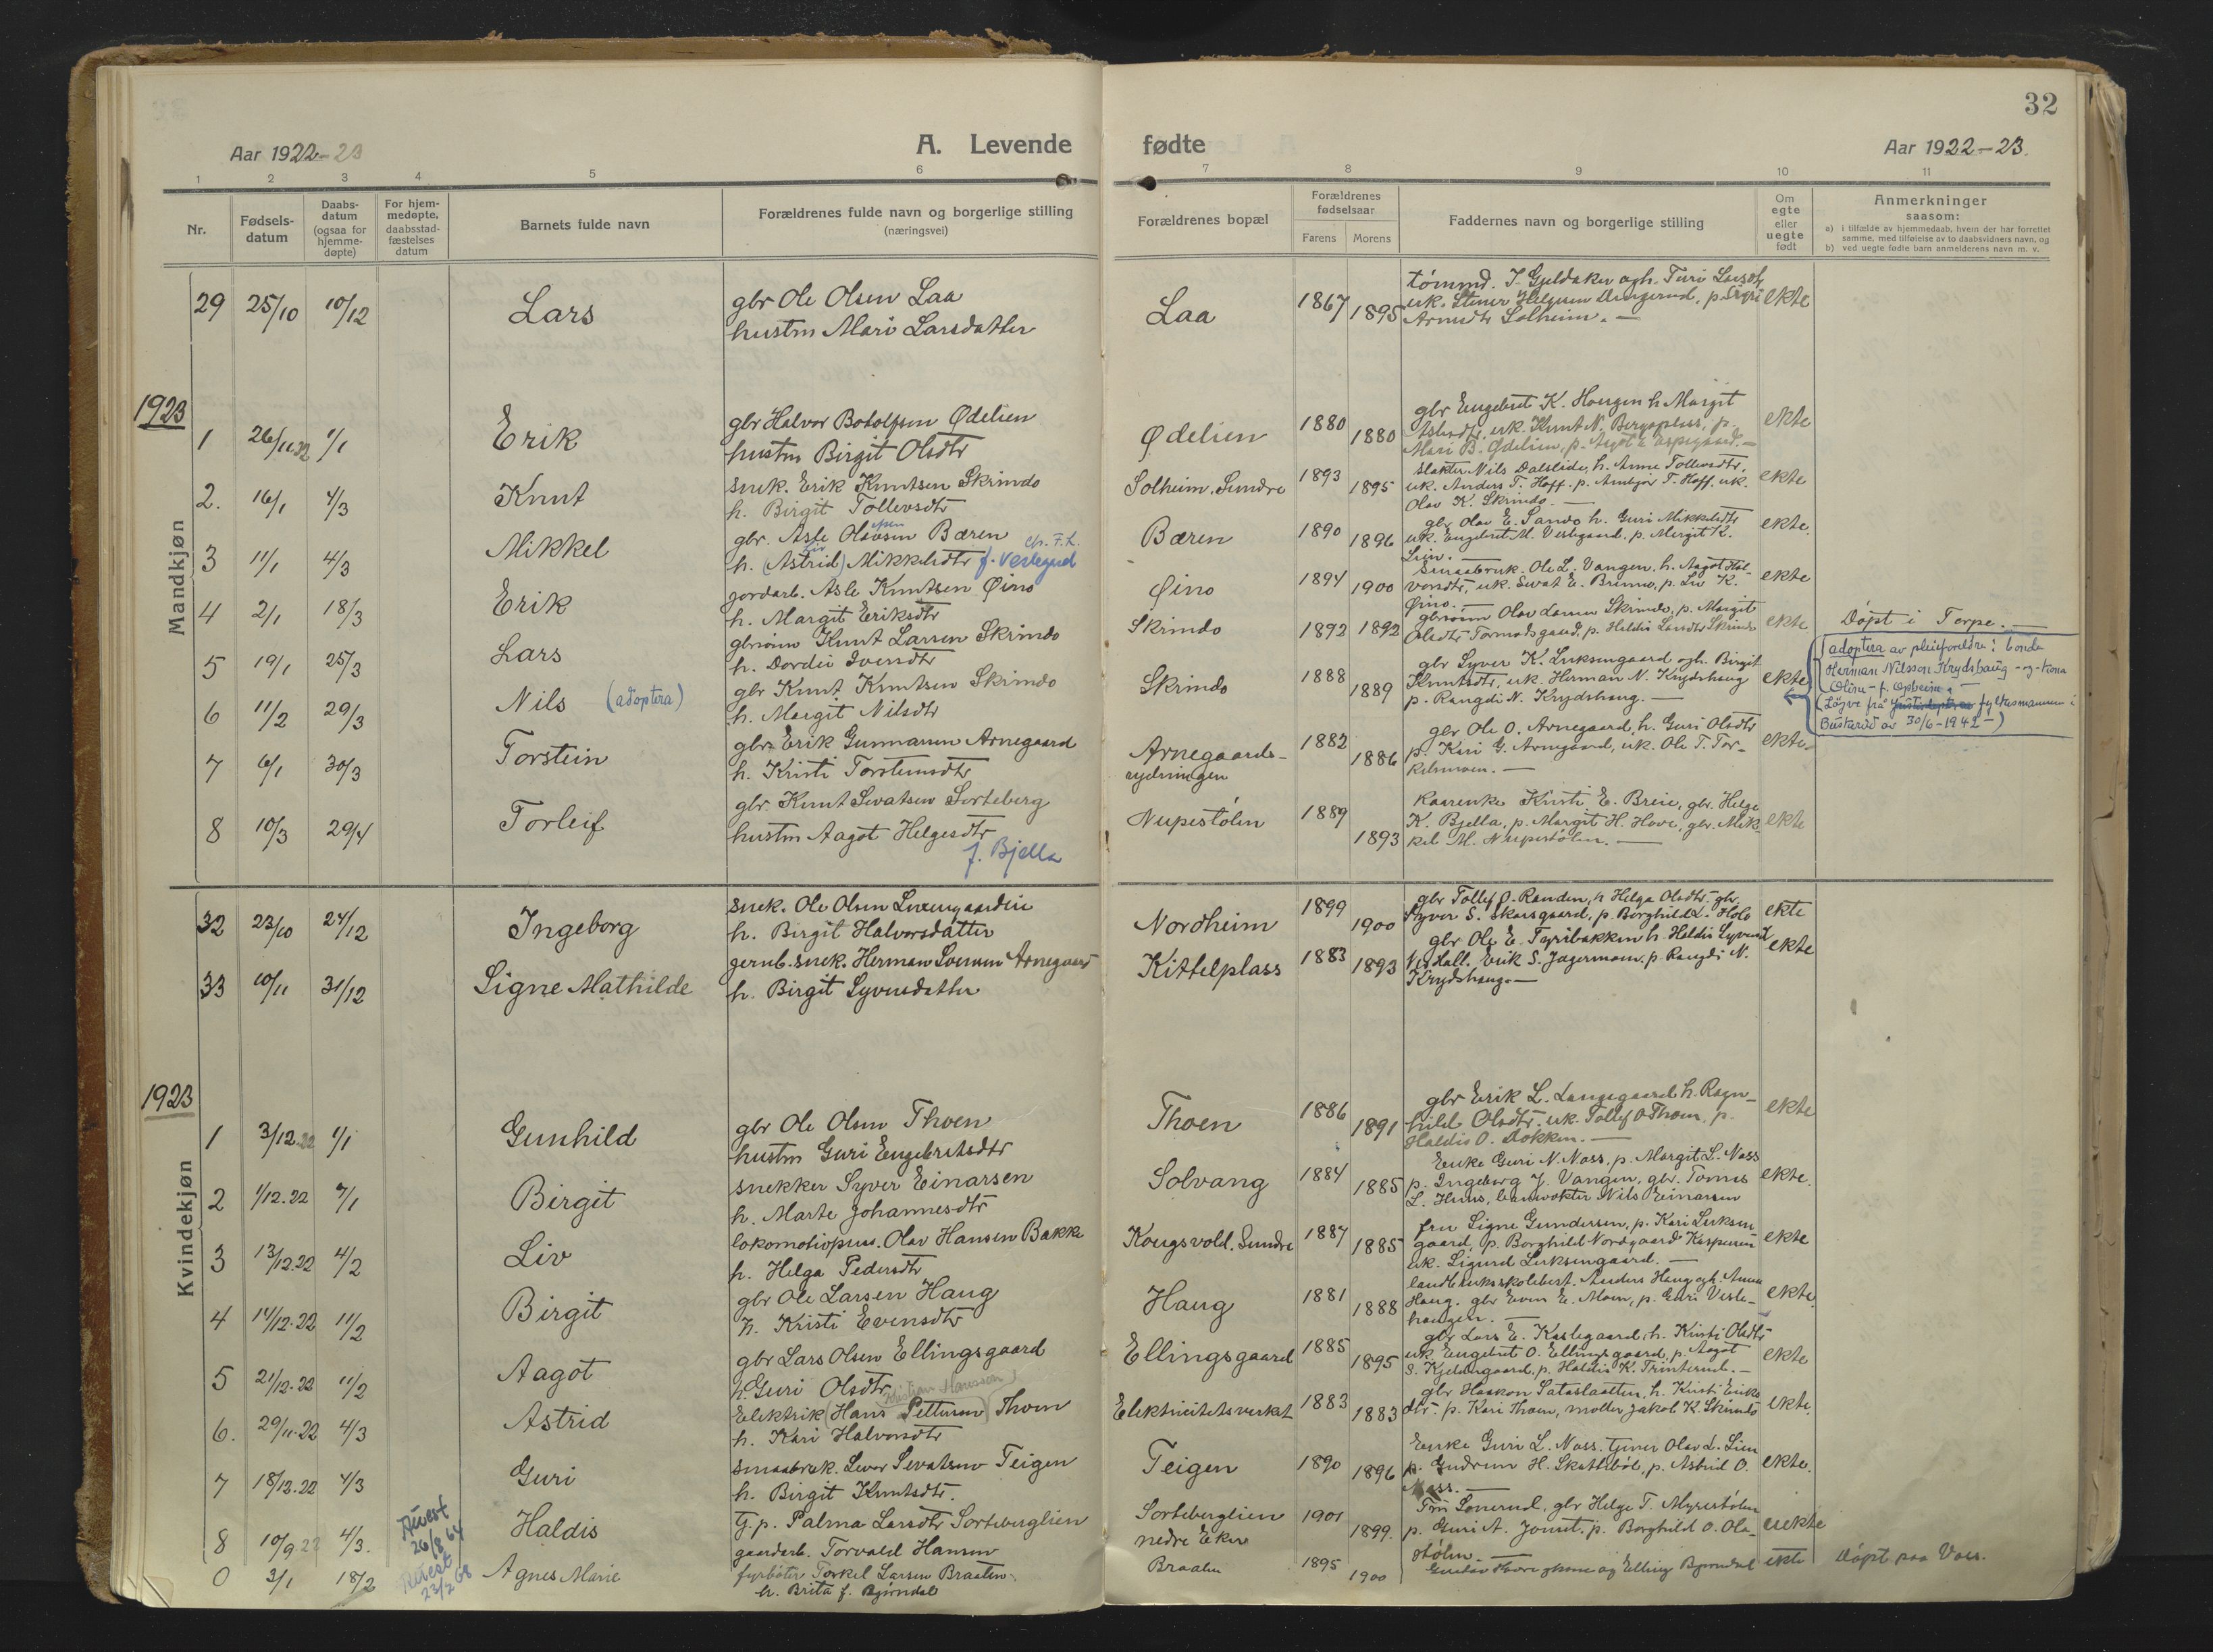 32
Aar 1922-23
A. Levende fødte
Aar 1922-23.
1 2 3 4 5 6 7 8 9 10 11
Nr.
Fødsels-
datum
Daabs-
datum
(ogsaa for
hjemme-
døpte)
For hjem-
medøpte,
daabsstad-
fæstelses
datum
Barnets fulde navn
Forældrenes fulde navn og borgerlige stilling
(næringsvei)
Forældrenes bopæl
Forældrenes
fødselsaar
Farens Morens
Faddernes navn og borgerlige stilling
Om
egte
eller
uegte
født
Anmerkninger
saasom:
a) i tilfælde av hjemmedaab, hvem der har forrettet
samme, med tilføielse av to daabsvidners navn, og
b) ved uegte fødte barn anmelderens navn m. v.
Mandkjøn
29 25/10 10/12 Lars
gbr Ole Olsen Laa
hustru Mari Larsdatter
Laa 1867 1895
Arnesdtr Solheim. —
ekte
1923
1 26/11 22 1/1 Erik
gbr Halvor Botolfsen Ødelien
hustru Birgit Olsdtr
Ødelien 1880 1880
gbr Engebret K. Haugen h. Margit
Mari B. Ødelien, p. Agot
ekte
2. 16/1 4/3 Knut
snek. Erik Knutsen Skrindo
h. Birgit Tollevsdtr
Solheim. Sundre 1893 1895
slakter Nils Dalslide, h. Anne Tollevsdtr,
uk. Anders T. Hoff. p. Ambjør T. Hoff. uk.
Olav K. Skrindo. —
ekte
3 11/1 4/3 Mikkel
gbr. Asle Olavsen Bæren
h. (Astrid) Mikkelsdtr f. Veslegard
Bæren 1890 1896
gbr Olav E. Sando h. Guri Mikkelsdtr
uk. Engebret M. Veslegaard. p. Margit K.
Lien. —
ekte.
4 2/1 18/3 Erik
jordarb. Asle Knutsen Øino
h. Margit Eriksdtr
Øino 1894 1900
smaabruk. Ole L. Vangen. h. Aagot Hal-
vorsdtr, uk. Sevat E. Brenno, p. Liv K.
Øino. —
ekte
5 19/1 25/3 Lars
gbrsønn Knut Larsen Skrindo
h. Dordei Svensdtr
Skrindo 1892 1892
gbrsønn Olav Larsen Skrindo, p. Margit
Olsdtr Tormodsgaard, p. Heldis Larsdtr Skrindo
ekte
Døpt i Torpe. —
6 11/2 29/3 Nils (adoptera)
gbr Knut Knutsen Skrindo
h. Margit Nilsdtr
Skrindo 1888 1889
gbr Syver K. Luksengaard ogh. Birgit
Knutsdtr, uk. Herman N. Krydshaug
p. Rangdi N. Krydshaug. —
ekte
adoptera av pleieforeldre: bonde
Herman Nilsson Krydshaug -og- kona
Oline - f. Opheim. —
(Løyve frå fylkesmannen i
Buskerud av 30/6-1942 —)
7 6/1 30/3 Torstein
gbr. Erik Gunnarsen Arnegaard
h. Kristi Torsteinsdtr
Arnegaards-
rydningen 1882 1886
gbr Ole O. Arnegaard, h. Guri Olsdtr
p. Kari G. Arnegaard, uk. Ole T. Tor-
kelsmoen. —
ekte
8 10/3 29/4 Torleif
gbr. Knut Sevatsen Sorteberg
hustru Aagot Helgesdtr
f. Bjella
Nupestølen 1889 1893
Kaarenke Kristi E. Breie, gbr. Helge
K. Bjella, p. Margit H. Hove, gbr. Mik-
kel M. Nupestølen. —
ekte
Kvindekjøn
32 23/10 24/12 Ingeborg
snek. Ole Olsen
h. Birgit Halvorsdatter
Nordheim 1899 1900
gbr Tollef O. Randen, h Helga Olsdtr. gbr.
Syver S. Skarsgaard, p. Borghild
ekte
33 10/11 31/12 Signe Mathilde
jernb. snek. Herman Svensen Arnegaard
h. Birgit Syversdatter
Kittelplass 1883 1893
gbr Ole E. Tyribakken h. Heldis Syversd
Erik S. Jagermoen. p. Rangdi N.
Krydshaug. —
ekte
1923
1 3/12.22 1/1 Gunhild
gbr Ole Olsen Thoen
hustru Guri Engebretsdtr
Thoen 1886 1891
gbr Erik L. Langegaard h. Ragn-
hild Olsdtr. uk. Tollef O Thoen, p.
Haldis O. Dokken. —
ekte
2 1/12.22 7/1 Birgit
snekker Syver Einarsen
h. Marte Johannesdtr
Solvang 1884 1885
Enke Guri N. Noss, p. Margit L. Noss
p. Ingeborg J. Vangen, gbr. Tomas
L. Huus, banevokter Nils Einarsen
ekte.
3 13/12.22 4/2 Liv
lokomotivpuss. Olav Hansen Bakke
h. Helga Pedersdtr
Kongsvold. Sundre 1887 1885
fru Signe Gundersen, p. Kari Luksen-
gaard, p. Borghild Nordgaard Kaspersen
uk. Sigurd Luksengaard. —
ekte
4 14/12.22 11/2 Birgit
gbr Ole Larsen Haug
h. Kristi Evensdtr
Haug 1881 1888
landbruksskolebest. Anders Haug ogh. Anna
Haug. gbr Even E. Moen, p. Guri Vesle-
haugen. —
ekte.
5 21/12.22 11/2 Aagot
gbr Lars Olsen Ellingsgaard
h. Guri Olsdtr
Ellingsgaard 1885 1895
gbr Lars E. Kaslegaard, h. Kristi Olsdtr
uk. Engebret O. Ellingsgaard, p. Aagot
S. Kjeldengaard, p. Haldis K. Trinterud. —
ekte
6. 29/11.22 4/3 Astrid
Kristian Hanssen
Elektrik (Hans Pettersen) Thoen
h. Kari Halvorsdtr
Elektricitetsverket 1883 1883
gbr Haakon Sataslaatten, h. Kristi Eriks
dtr. p. Kari Thoen, møller Jakob K. Skrindo
ekte.
7 18/12.22 4/3 Guri
smaabruk. Levor Sevatsen Teigen
h. Birgit Knutsdtr.
Teigen 1890 1896
Enke Guri L. Noss. tjener Olav L. Lien
p. Gudrun H. Skattebøl, p. Astrid O.
Noss. —
ekte.
8 10/9 22 4/3.
Attest
26/8 64
Haldis
tj. p. Palma Larsdtr Sorteberglien
gaardarb. Torvald Hansen
Sorteberglien
nedre Eker 1901 1899.
Fru Sonerud, gbr Helge T. Myrestølen
p. Guri A. Jonset, p. Borghild O. Ola-
stølen. —
uekte
0 3/1 18/2
Attest
23/2 68
Agnes Marie
fyrbøter Torkel Larsen Braaten
h. Brita f. Bjørndal
Braaten 1895 1900
Gustav Hovre og Elling Bjørndal
ekte
Døpt paa Voss.